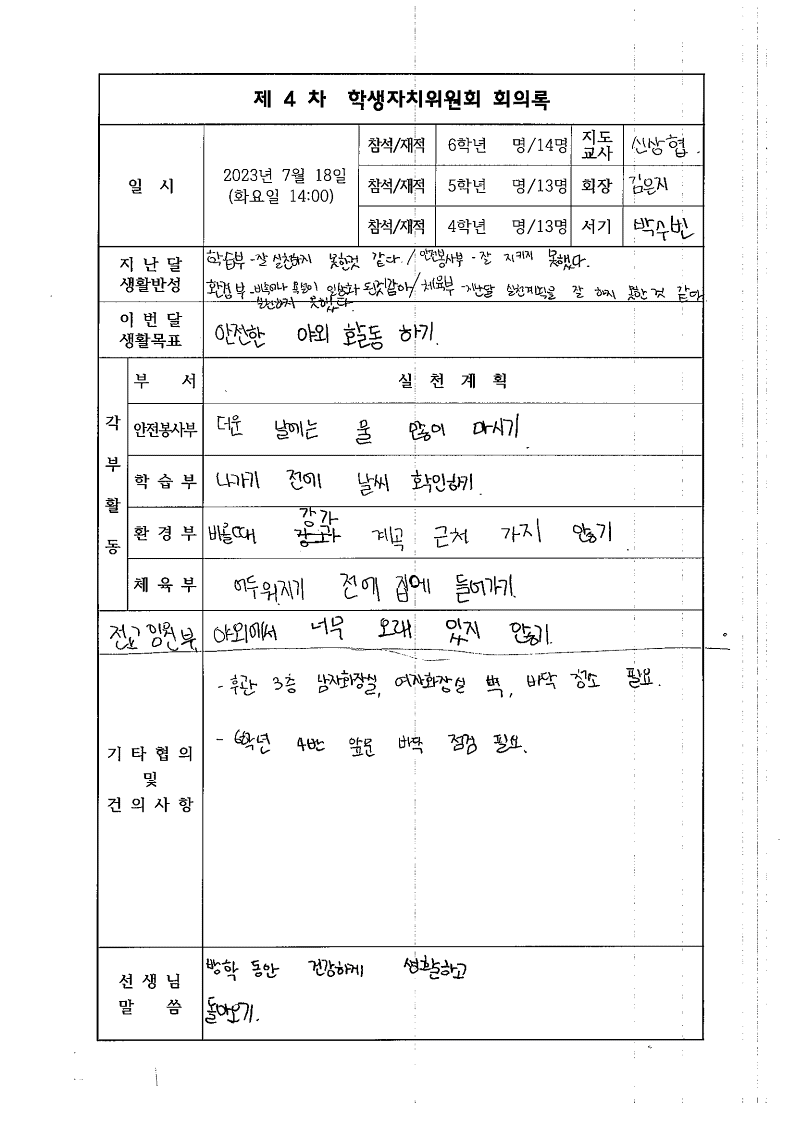 제 4 차 학생자치위원회 회의록
일 시
2023년 7월 18일
(화요일 14:00)
참석/재적 6학년 명/14명 지도교사 신상협
참석/재적 5학년 명/13명 회장 김은지
참석/재적 4학년 명/13명 서기 박수빈
지난달 생활반성
학습부 - 잘 실천하지 못한것 같다. / 안전봉사부 - 잘 지키지 못했다.
환경부 - 이 일상화 된것같아 / 체육부 - 지난달 실천계획을 잘 하지 못한 것 같다
실천하지 못했다.
이번달 생활목표
안전한 야외 활동 하기.
각 부 활 동
부 서 실 천 계 획
안전봉사부 더운 날에는 물 많이 마시기
학 습 부 나가기 전에 날씨 확인하기
강과
환 경 부 비올때 계곡 근처 가지 않기
체 육 부 어두워지기 전에 집에 들어가기.
전교 임원부 야외에서 너무 오래 있지 않기.
기 타 협 의
및
건 의 사 항
- 후관 3층 남자화장실, 여자화장실 벽, 바닥 청소 필요.
- 6학년 4반 앞문 바닥 점검 필요.
선 생 님
말 씀
방학 동안 건강하게 생활하고
돌아오기.